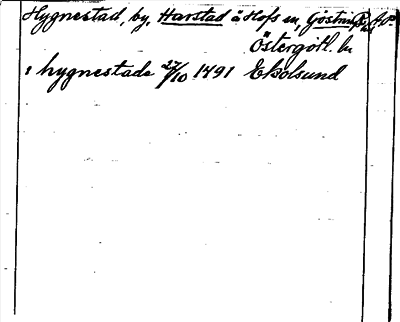 Hygnestad, by, Harstad å Hofs sn, Göstrings hd
Östergötl. ln
i hygnestade 27/10 1491 Ekolsund